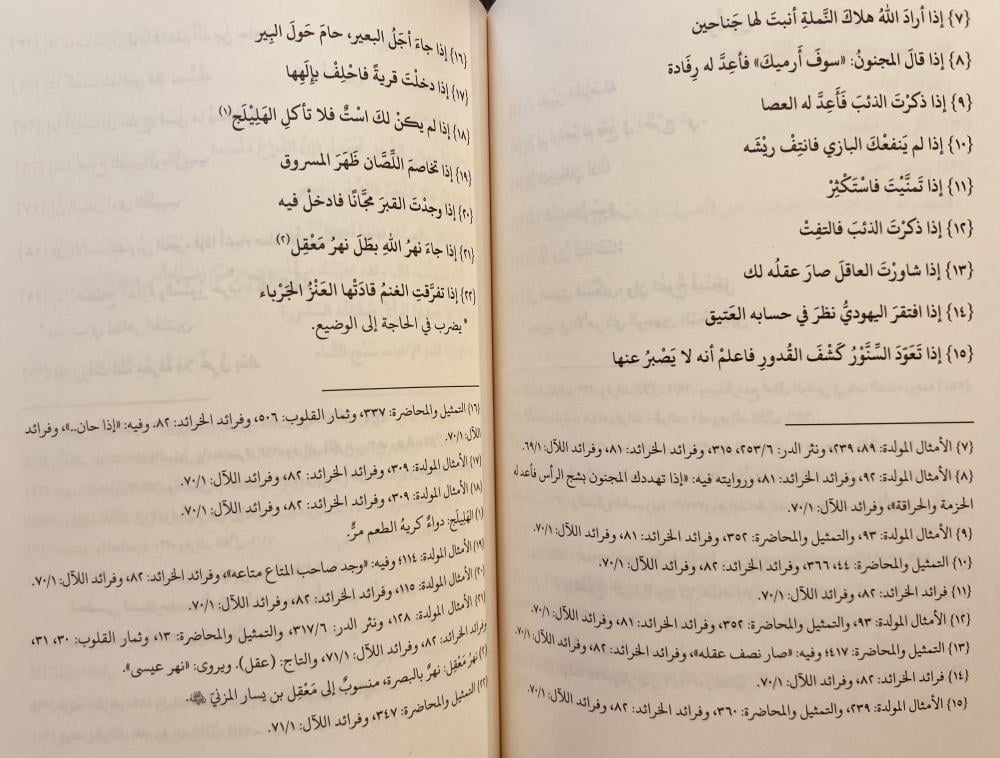 {٧} إذا أرادَ اللهُ هلاكَ النَّملةِ أنبتَ لها جَناحين
{٨} إذا قالَ المجنونُ: «سوفَ أَرميكَ» فأَعِدَّ له رِفَادة
{٩} إذا ذكرْتَ الذئبَ فَأَعِدَّ له العصا
{١٠} إذا لم يَنفعْكَ البازي فانتِفْ ريْشَه
{١١} إذا تَمنَّيْتَ فاسْتَكْثِرْ
{١٢} إذا ذكرْتَ الذئبَ فالتفِتْ
{١٣} إذا شاورْتَ العاقلَ صارَ عقلُه لك
{١٤} إذا افتقرَ اليهوديُّ نظرَ في حسابه العَتيق
{١٥} إذا تَعوّدَ السِّنَّوْرُ كَشْفَ القُدورِ فاعلمْ أنه لا يَصْبرُ عنها
{٧} الأمثال المولدة: ٨٩، ٢٣٩، ونثر الدر: ٢٥٣/٦، ٣١٥، وفرائد الخرائد: ٨١، وفرائد اللآل: ٦٩/١.
{٨} الأمثال المولدة: ٩٢، وفرائد الخرائد: ٨١، وروايته فيه: «إذا تهددك المجنون بشج الرأس فأعد له
الحزمة والحراقة»، وفرائد اللآل: ٧٠/١.
{٩} الأمثال المولدة: ٩٣، والتمثيل والمحاضرة: ٣٥٢، وفرائد الخرائد: ٨١، وفرائد اللآل: ٧٠/١.
{١٠} التمثيل والمحاضرة: ٤٤، ٣٦٦، وفرائد الخرائد: ٨٢، وفرائد اللآل: ٧٠/١.
{١١} فرائد الخرائد: ٨٢، وفرائد اللآل: ٧٠/١.
{١٢} الأمثال المولدة: ٩٣، والتمثيل والمحاضرة: ٣٥٢، وفرائد الخرائد: ٨١، وفرائد اللآل: ٧٠/١.
{١٣} التمثيل والمحاضرة: ٤١٧؛ وفيه: «صار نصف عقله»، وفرائد الخرائد: ٨٢، وفرائد اللآل: ٧٠/١.
{١٤} فرائد الخرائد: ٨٢، وفرائد اللآل: ٧٠/١.
{١٥} الأمثال المولدة: ٢٣٩، والتمثيل والمحاضرة: ٣٦٠، وفرائد الخرائد: ٨٢، وفرائد اللآل: ٧٠/١.
{١٦} إذا جاءَ أجَلُ البعير، حامَ حَولَ البِير
{١٧} إذا دخلْتَ قريةً فاحْلِفْ بِإِلَهِها
{١٨} إذا لم يكنْ لكَ اسْتٌ فلا تأكلِ الهَلِيْلَج(١)
{١٩} إذا تخاصمَ اللِّصَّان ظَهَرَ المسروق
{٢٠} إذا وجدْتَ القبرَ مجَّانًا فادخلْ فيه
{٢١} إذا جاءَ نهرُ اللهِ بطَلَ نهرُ مَعْقِل(٢)
{٢٢} إذا تفرَّقتِ الغنمُ قادَتْها العَنْزُ الجَرْباء
* يضرب في الحاجة إلى الوضيع.
{١٦} التمثيل والمحاضرة: ٣٣٧، وثمار القلوب: ٥٠٦، وفرائد الخرائد: ٨٢. وفيه: «إذا حان..»، وفرائد
اللآل: ٧٠/١.
{١٧} الأمثال المولدة: ٣٠٩، وفرائد الخرائد: ٨٢، وفرائد اللآل: ٧٠/١.
{١٨} الأمثال المولدة: ٣٠٩، وفرائد الخرائد: ٨٢، وفرائد اللآل: ٧٠/١.
(١) الهَلِيلَج: دواءٌ كريهُ الطعم مرٌّ.
{١٩} الأمثال المولدة: ١١٤؛ وفيه: «وجد صاحب المتاع متاعه»، وفرائد الخرائد: ٨٢، وفرائد اللآل: ٧٠/١.
{٢٠} الأمثال المولدة: ١١٥، وفرائد الخرائد: ٨٢، وفرائد اللآل: ٧٠/١.
{٢١} الأمثال المولدة: ١٢٨، ونثر الدر: ٣١٧/٦، والتمثيل والمحاضرة: ١٣، وثمار القلوب: ٣٠، ٣١،
وفرائد الخرائد: ٨٢، وفرائد اللآل: ٧١/١، والتاج: (عقل). ويروى: «نهر عيسى».
(٢) نهرُ مَعْقِل: نهرٌ بالبصرة، منسوبٌ إلى مَعْقِل بن يسار المزنيّ ﵁.
{٢٢} التمثيل والمحاضرة: ٣٤٧، وفرائد اللآل: ٧١/١.